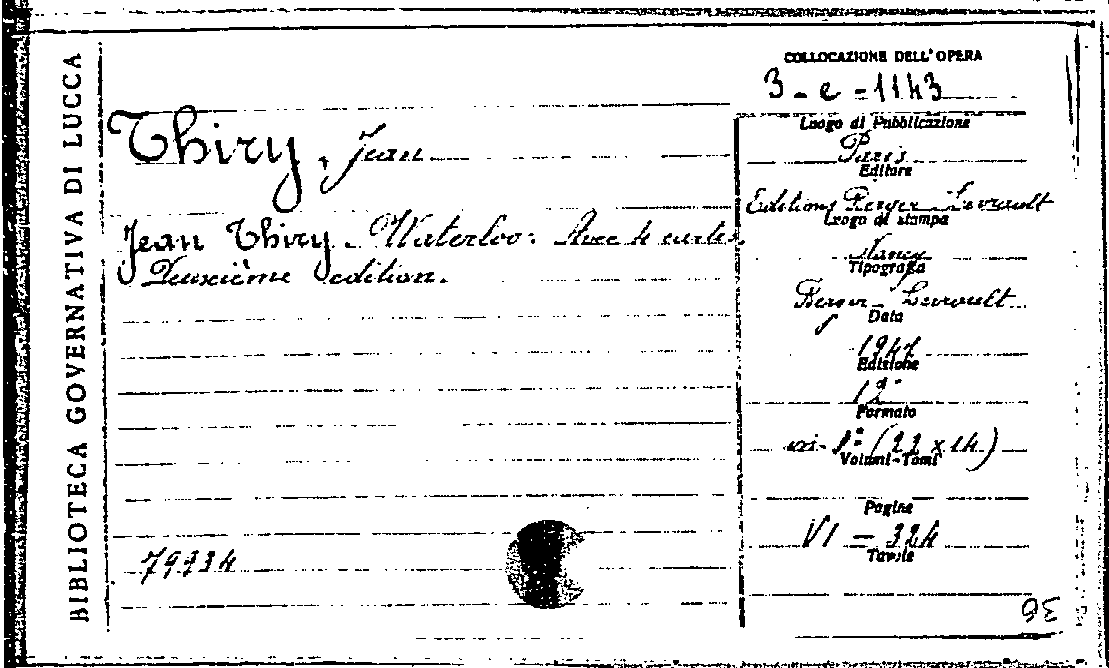 BIBLIOTECA GOVERNATIVA DI LUCCA
Thiry, Jean
Jean Thiry - Waterloo: Avec 4 cartes.
Deuxième edition.
79934
COLLOCAZIONE DELL'OPERA
3-e-1143
Luogo di Pubblicazione
Paris
Editore
Editions Berger-Levrault
Luogo di stampa
Nancy
Tipografia
Berger-Levrault
Data
1947
Edizione
Formato
8° (22 x 14)
Volumi-Tomi
Pagine
VI - 324
Tavole